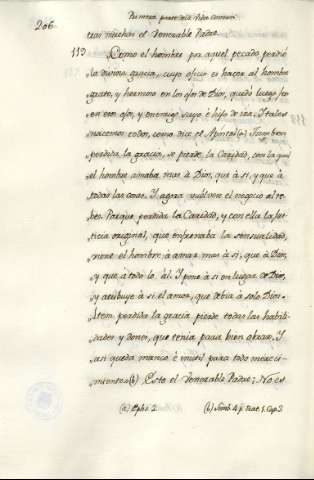 206. Primera parte de la Vida
tras muchas el Venerable Padre.
113 Como el hombre por aquel pecado perdió
la divina gracia, cuyo oficio es hacer al hombre
grato, y hermoso en los ojos de Dios, queda luego feo
en esos ojos, y enemigo suyo è hijo de ira. Y tales
nacemos todos, como dice el Apostol (a) Tambien
perdida la gracia, se pierde la Caridad, con la qual
el hombre amaba mas à Dios, que à sí, y que à
todas las cosas. Y agora vuelvese el negocio al re-
bes. Porque perdida la Caridad, y con ella la Jus-
ticia original, que enfrenaba la sensualidad,
viene el hombre à amar mas à sí, que à Dios,
y que à todo lo àl. Y pone à sí en lugar de Dios,
y atribuye à sí el amor, que debia à solo Dios.
Item perdida la gracia pierde todas las habili-
dades y dones, que tenia para bien obrar. Y
asi queda manco è inutil para todo mereci-
miento. (b) Esto el Venerable Padre; No es
(a) Ephs. 2. (b) Simb. 4. p. trat. 1. Cap. 3